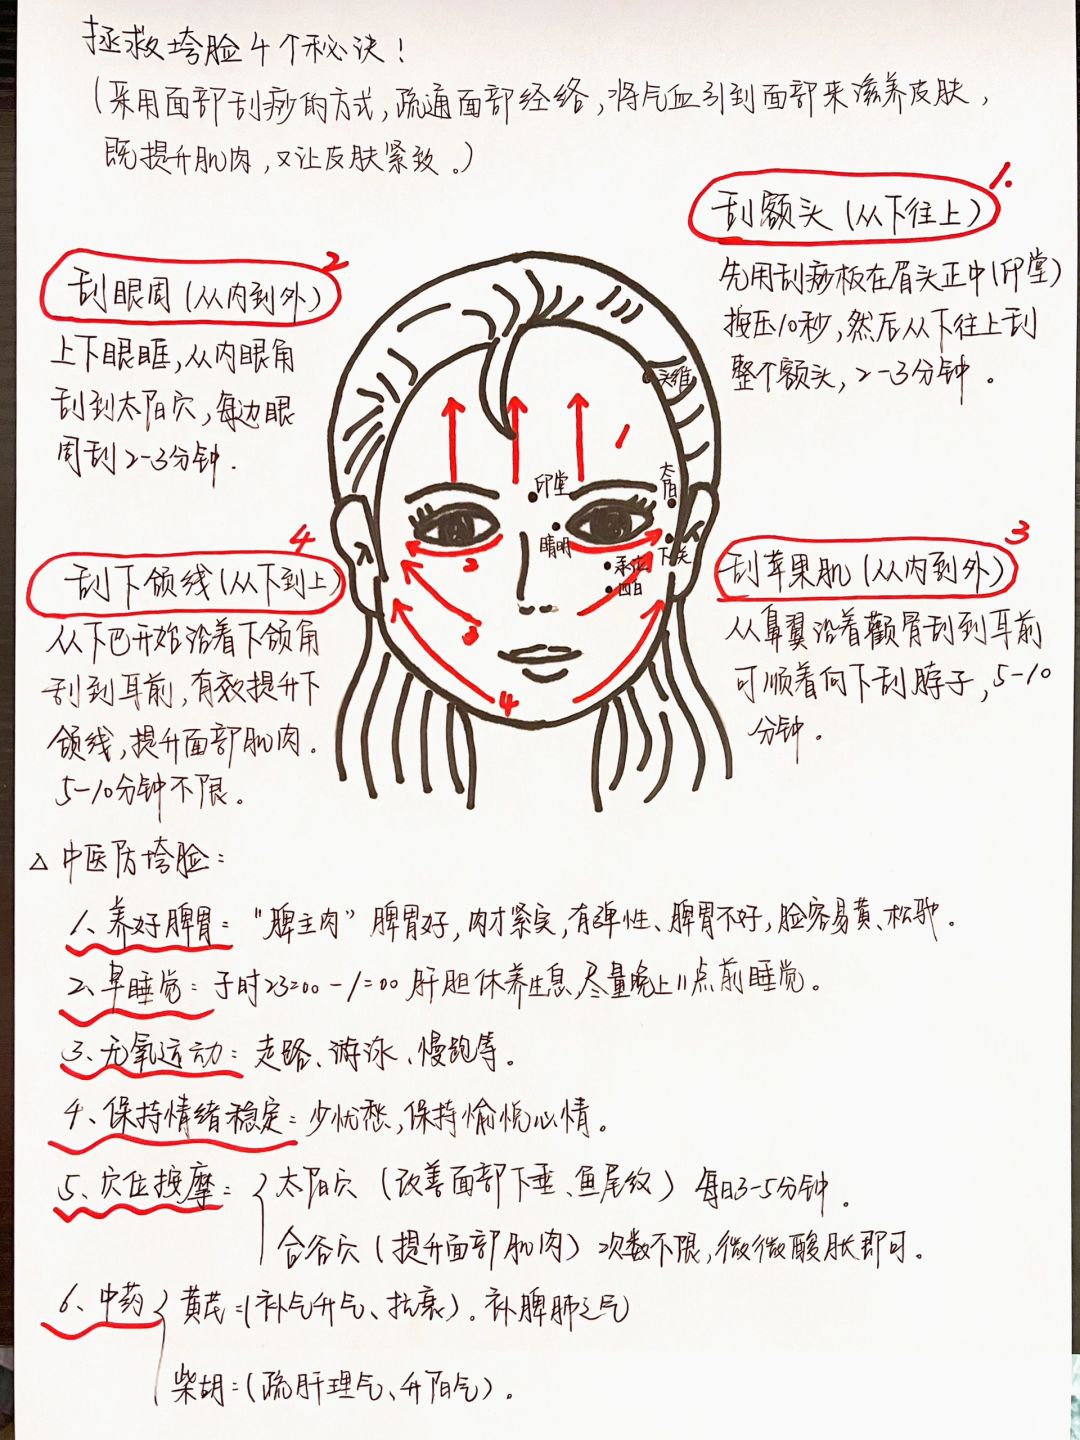 拯救垮脸4个秘诀！
（采用面部刮痧的方式，疏通面部经络，将气血引到面部来滋养皮肤，
既提升肌肉，又让皮肤紧致。）
1.
刮额头（从下往上）
先用刮痧板在眉头正中（印堂）
按压10秒，然后从下往上刮
整个额头，2-3分钟。
2
刮眼周（从内到外）
上下眼眶，从内眼角
刮到太阳穴，每边眼
周刮2-3分钟.
3
刮苹果肌（从内到外）
从鼻翼沿着颧骨刮到耳前
可顺着向下刮脖子，5-10
分钟。
4
刮下颌线（从下到上）
从下巴开始沿着下颌角
刮到耳前，有效提升下
颌线，提升面部肌肉.
5-10分钟不限。
头维
1
印堂
太阳
睛明
下关
承泣
四白
2
3
4
△中医防垮脸：
1、养好脾胃："脾主肉"脾胃好，肉才紧实，有弹性、脾胃不好，脸容易黄、松弛.
2、早睡觉：子时23:00-1:00肝胆休养生息，尽量晚上11点前睡觉。
3、无氧运动：走路、游泳、慢跑等。
4、保持情绪稳定：少忧愁，保持愉悦心情。
5、穴位按摩：太阳穴（改善面部下垂、鱼尾纹）每日3-5分钟.
合谷穴（提升面部肌肉）次数不限，微微酸胀即可。
6、中药 黄芪：（补气升气、抗衰）.补脾肺之气
柴胡：（疏肝理气、升阳气）.